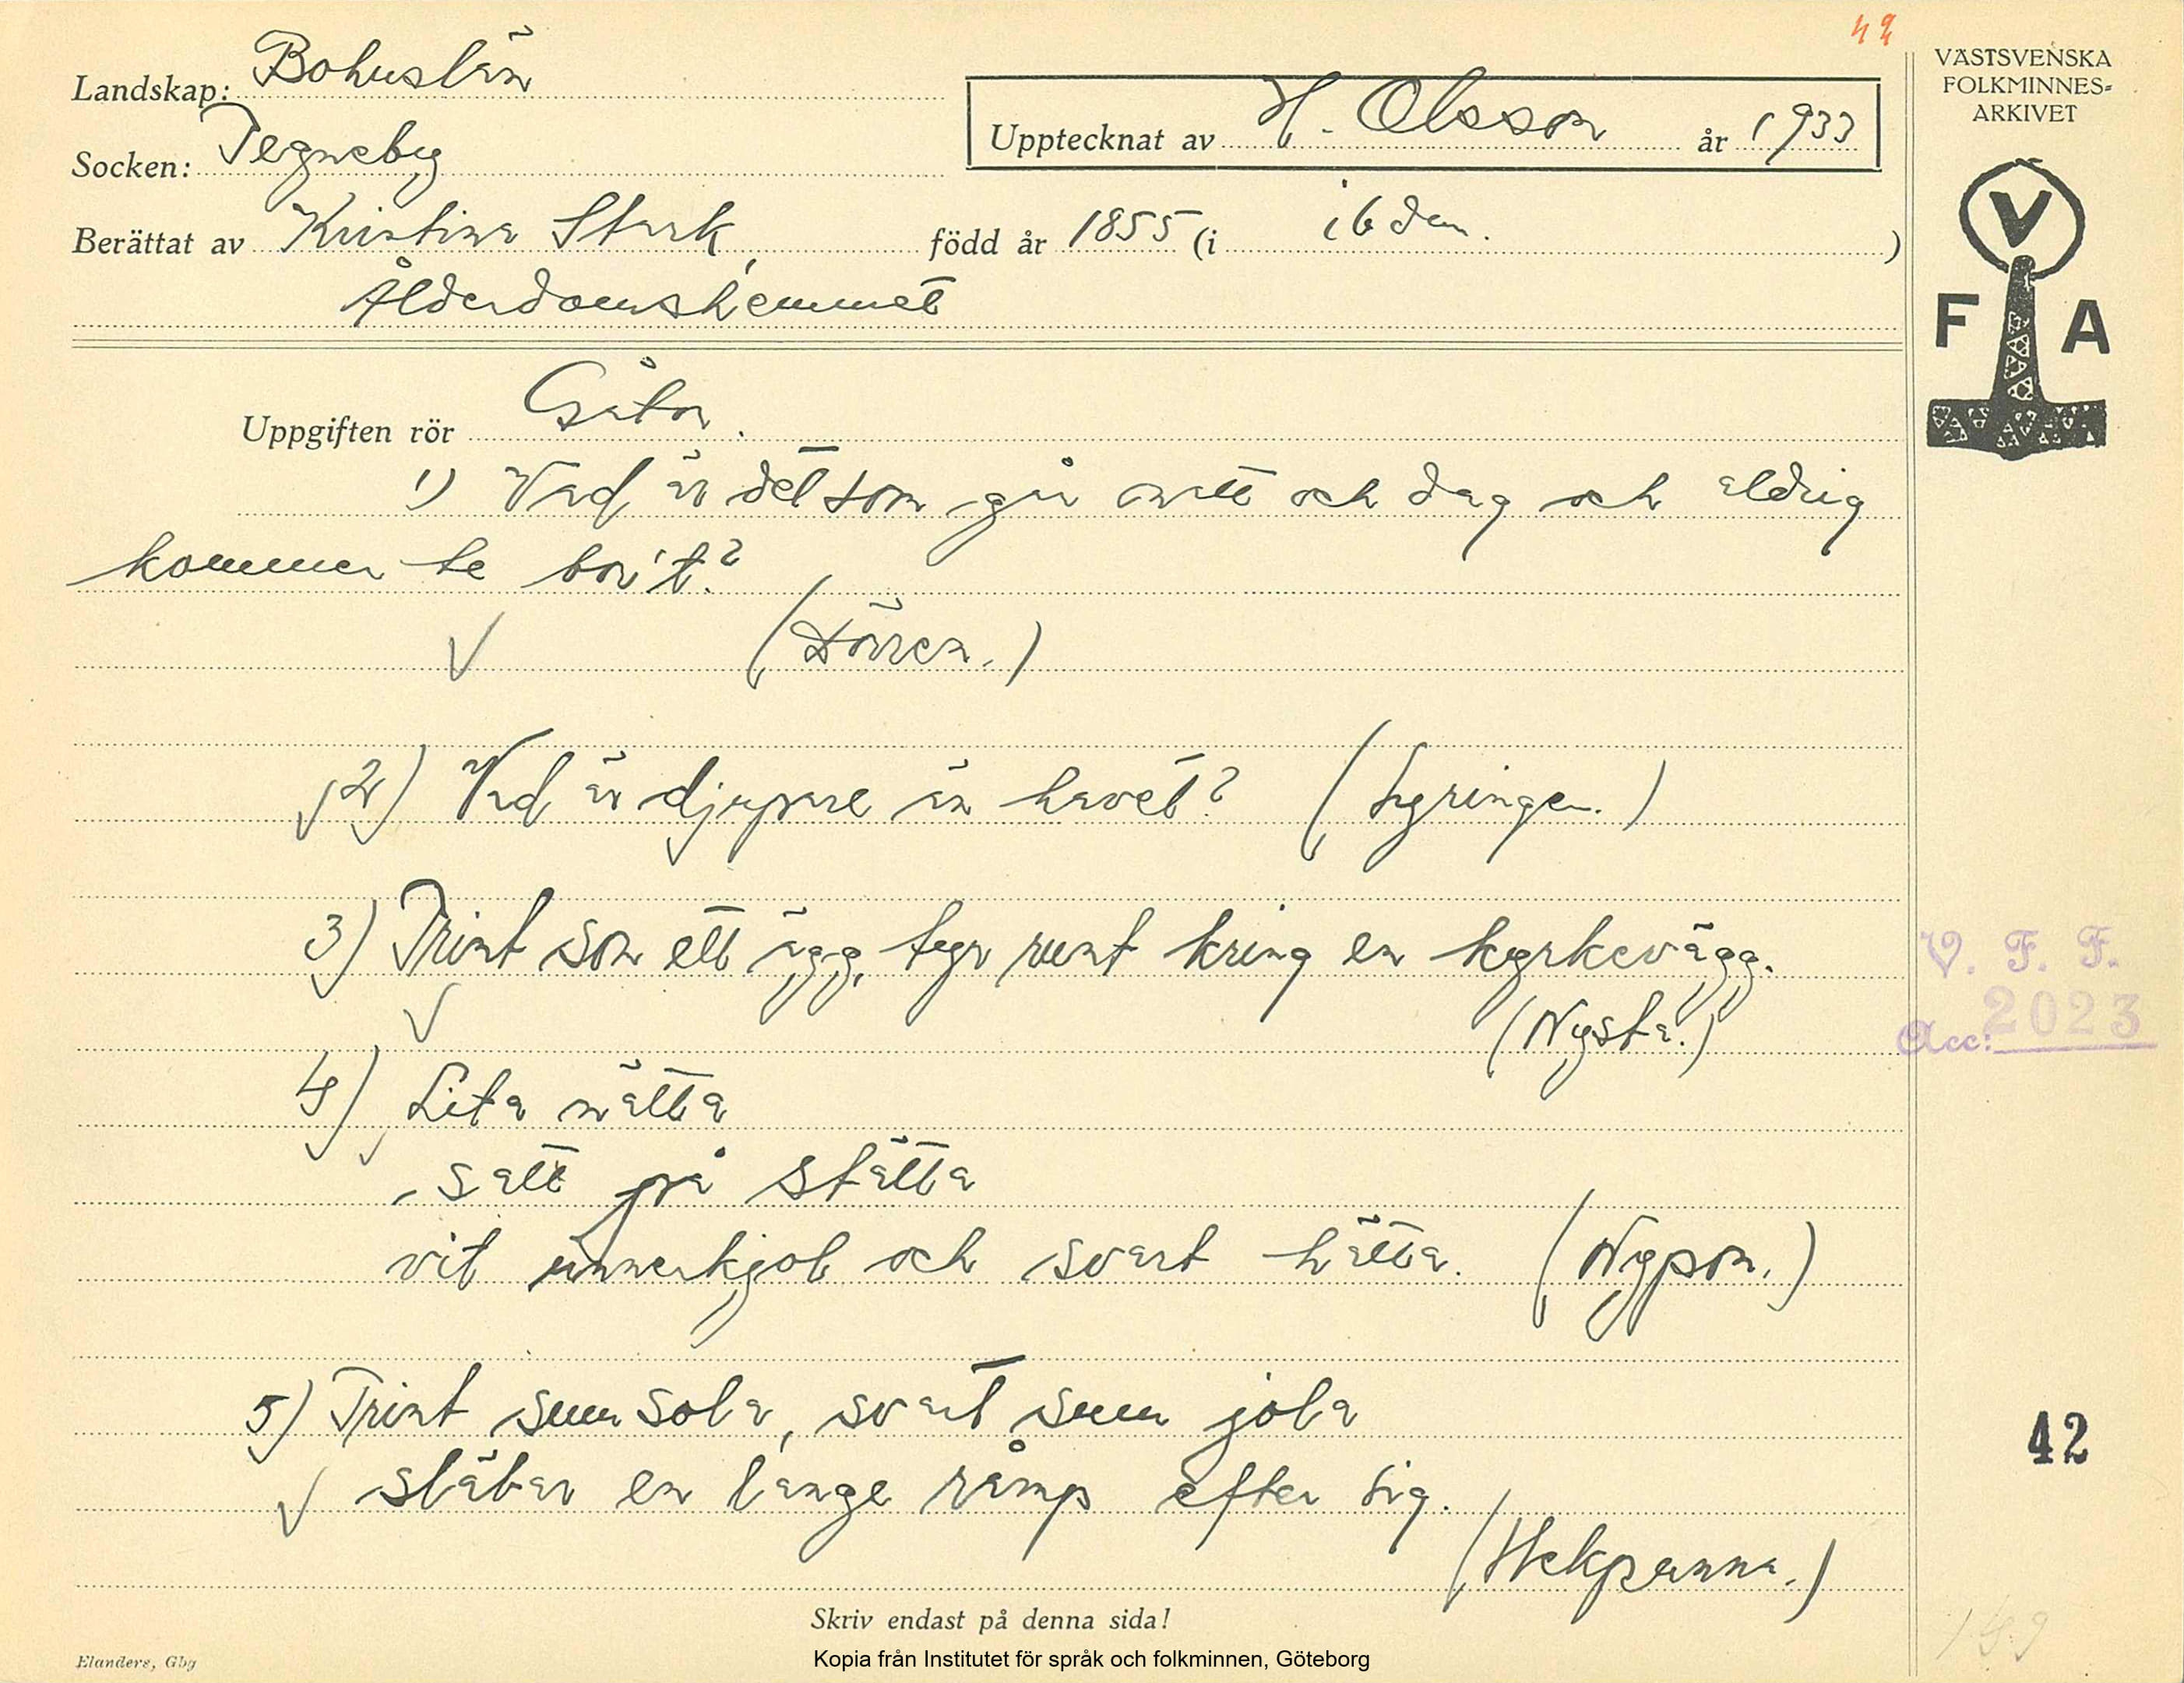 42
Landskap: Bohuslän
Socken: Tegneby
Upptecknat av H. Olsson år 1933
Berättat av Kristina Stark, född år 1855 (i ibdem.)
Ålderdomshemmet
VÄSTSVENSKA
FOLKMINNES-
ARKIVET
V
F A
Uppgiften rör Gåtor.
1) Vad är det som går natt och dag och aldrig
kommer te bort?
(Dörren.)
2) Vad är djupare än havet? (Lyringen.)
3) Trint som ett ägg, tyr runt kring en kyrkevägg.
(Nysta.)
V. F. F.
Acc: 2023
4) Lita nätta
satt på stätta
vit unnerkjol och svart hätta. (Nypon.)
5) Trint sum sola, svart sum jola
släbar en lange råmp efter sig.
(Wekpanna.)
42
Skriv endast på denna sida!
Kopia från Institutet för språk och folkminnen, Göteborg
Elanders, Gbg